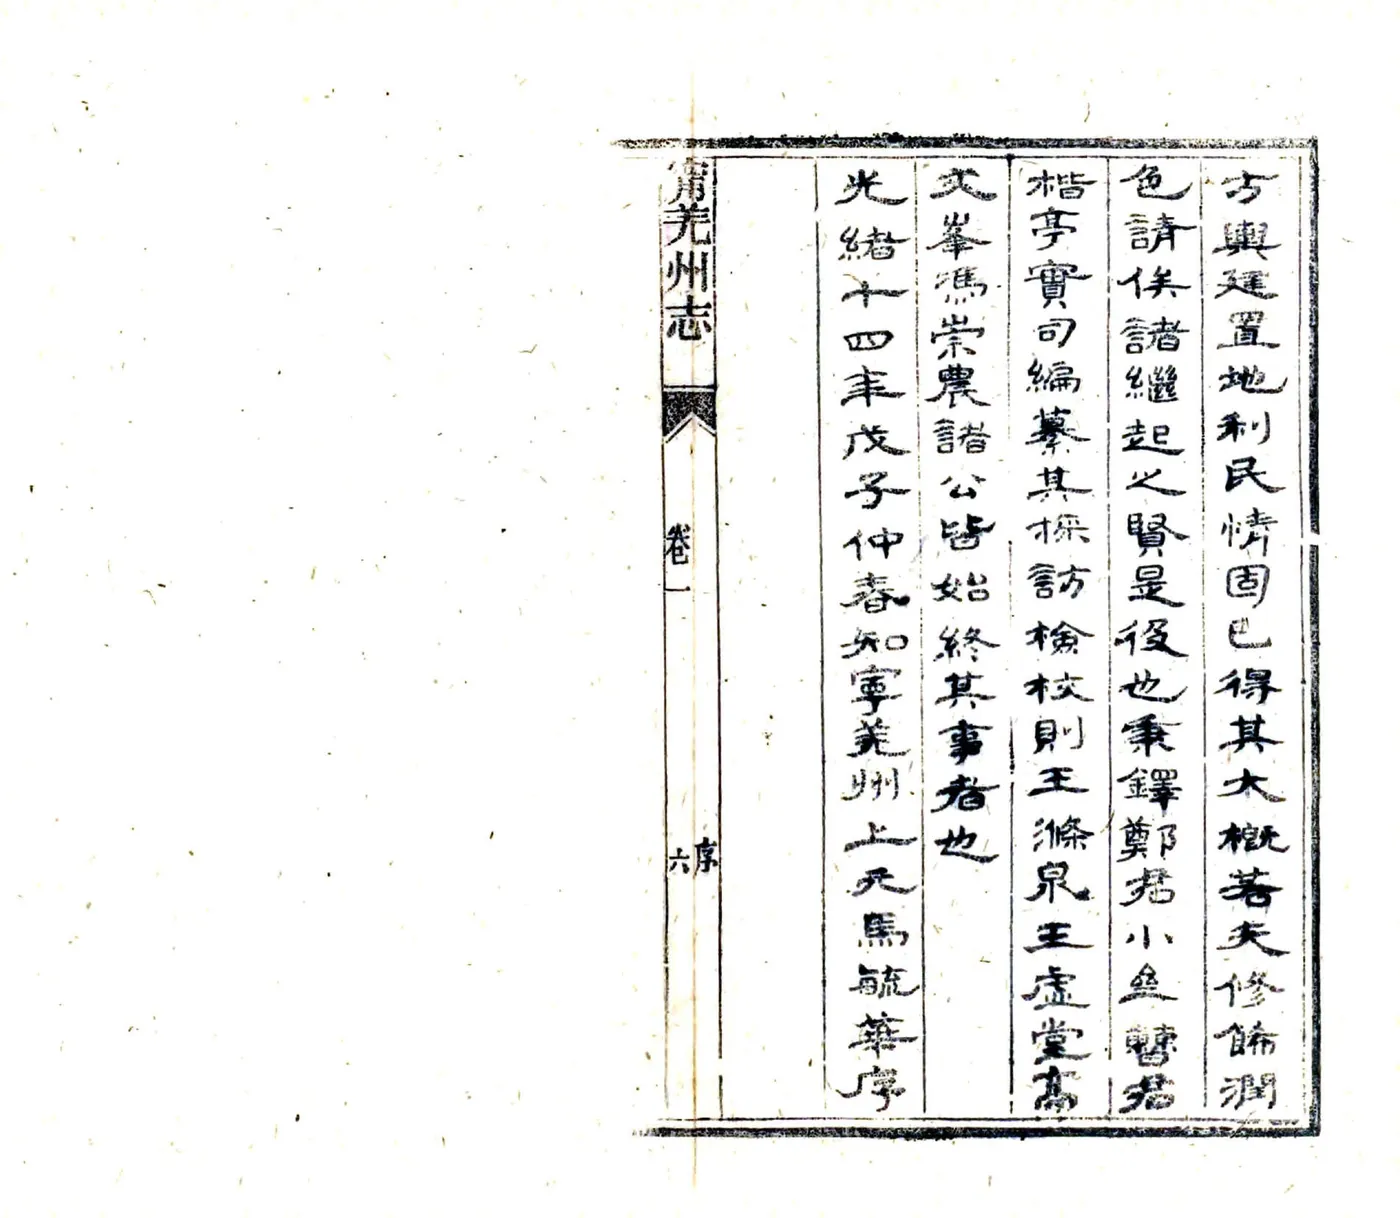 方輿建置地利民情固已得其大概若夫修餙潤
色請俟諸繼起之賢是役也秉鐸鄭君小垒曹君
楷亭實司編纂其採訪檢校則王滌泉王虛堂高
文峯馮崇農諸公皆始終其事者也
光緒十四年戊子仲春知寧羌州上元馬毓華序
甯羌州志
卷一
序
六